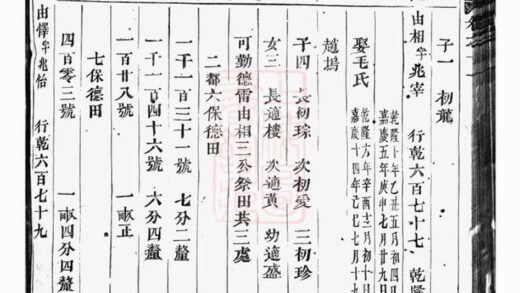 子一 初龍
由相 字兆宰 行乾六百七十七 乾隆
乾隆十年乙丑五月初四日
嘉慶五年庚申七月廿九日
娶毛氏
乾隆六年辛酉十二月初十日
嘉慶十四年己巳七月十九
趙塢
子四 長初琮 次初愛 三初珍
女三 長適樓 次適黃 幼適盛
可勤德雷由相三公祭田共三處
二都六保德田
一千一百三十一號 七分二釐
一千一百四十六號 六分四釐
一百廿八號 一畝正
七保德田
四百零三號 一畝四分四釐
由懌 字兆怡 行乾六百七十九